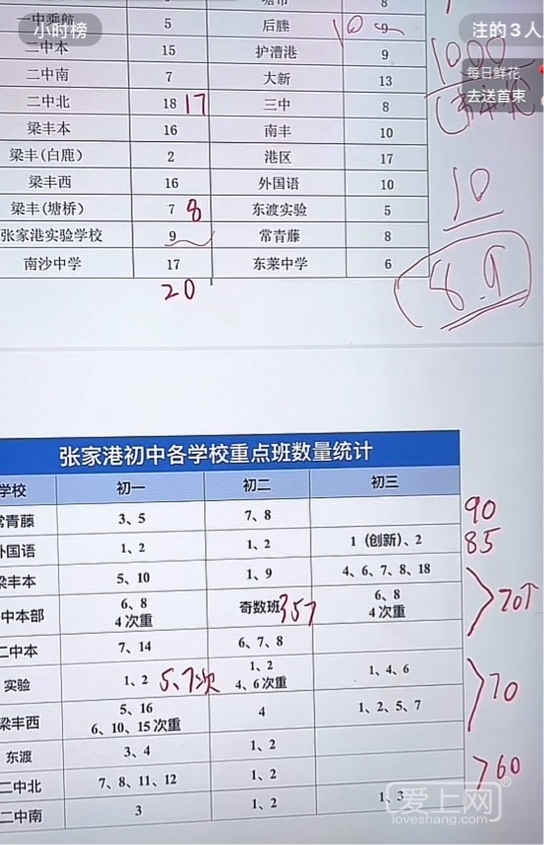 小时榜
注的3人
每日鲜花
去送首束
一中乘航 5 后塍 9 10
二中本 15 护漕港 9
二中南 7 大新 13
二中北 18 17 三中 8
梁丰本 16 南丰 10
梁丰(白鹿) 2 港区 17
梁丰西 16 外国语 10
梁丰(塘桥) 7 8 东渡实验 5
张家港实验学校 9 常青藤 8
南沙中学 17 东莱中学 6
20
1000
10
8.9
张家港初中各学校重点班数量统计
学校 初一 初二 初三
常青藤 3、5 7、8 90
外国语 1、2 1、2 1（创新）、2 85
梁丰本 5、10 1、9 4、6、7、8、18
中本部 6、8 奇数班 357 6、8 70↑
4次重 4次重
二中本 7、14 6、7、8
实验 1、2 5、7次 1、2 1、4、6
4、6次重
70
梁丰西 5、16 4 1、2、5、7
6、10、15次重
东渡 3、4 1、2
二中北 7、8、11、12 1、2 60
二中南 3 1、2 1、3
爱上网
loveshang.com